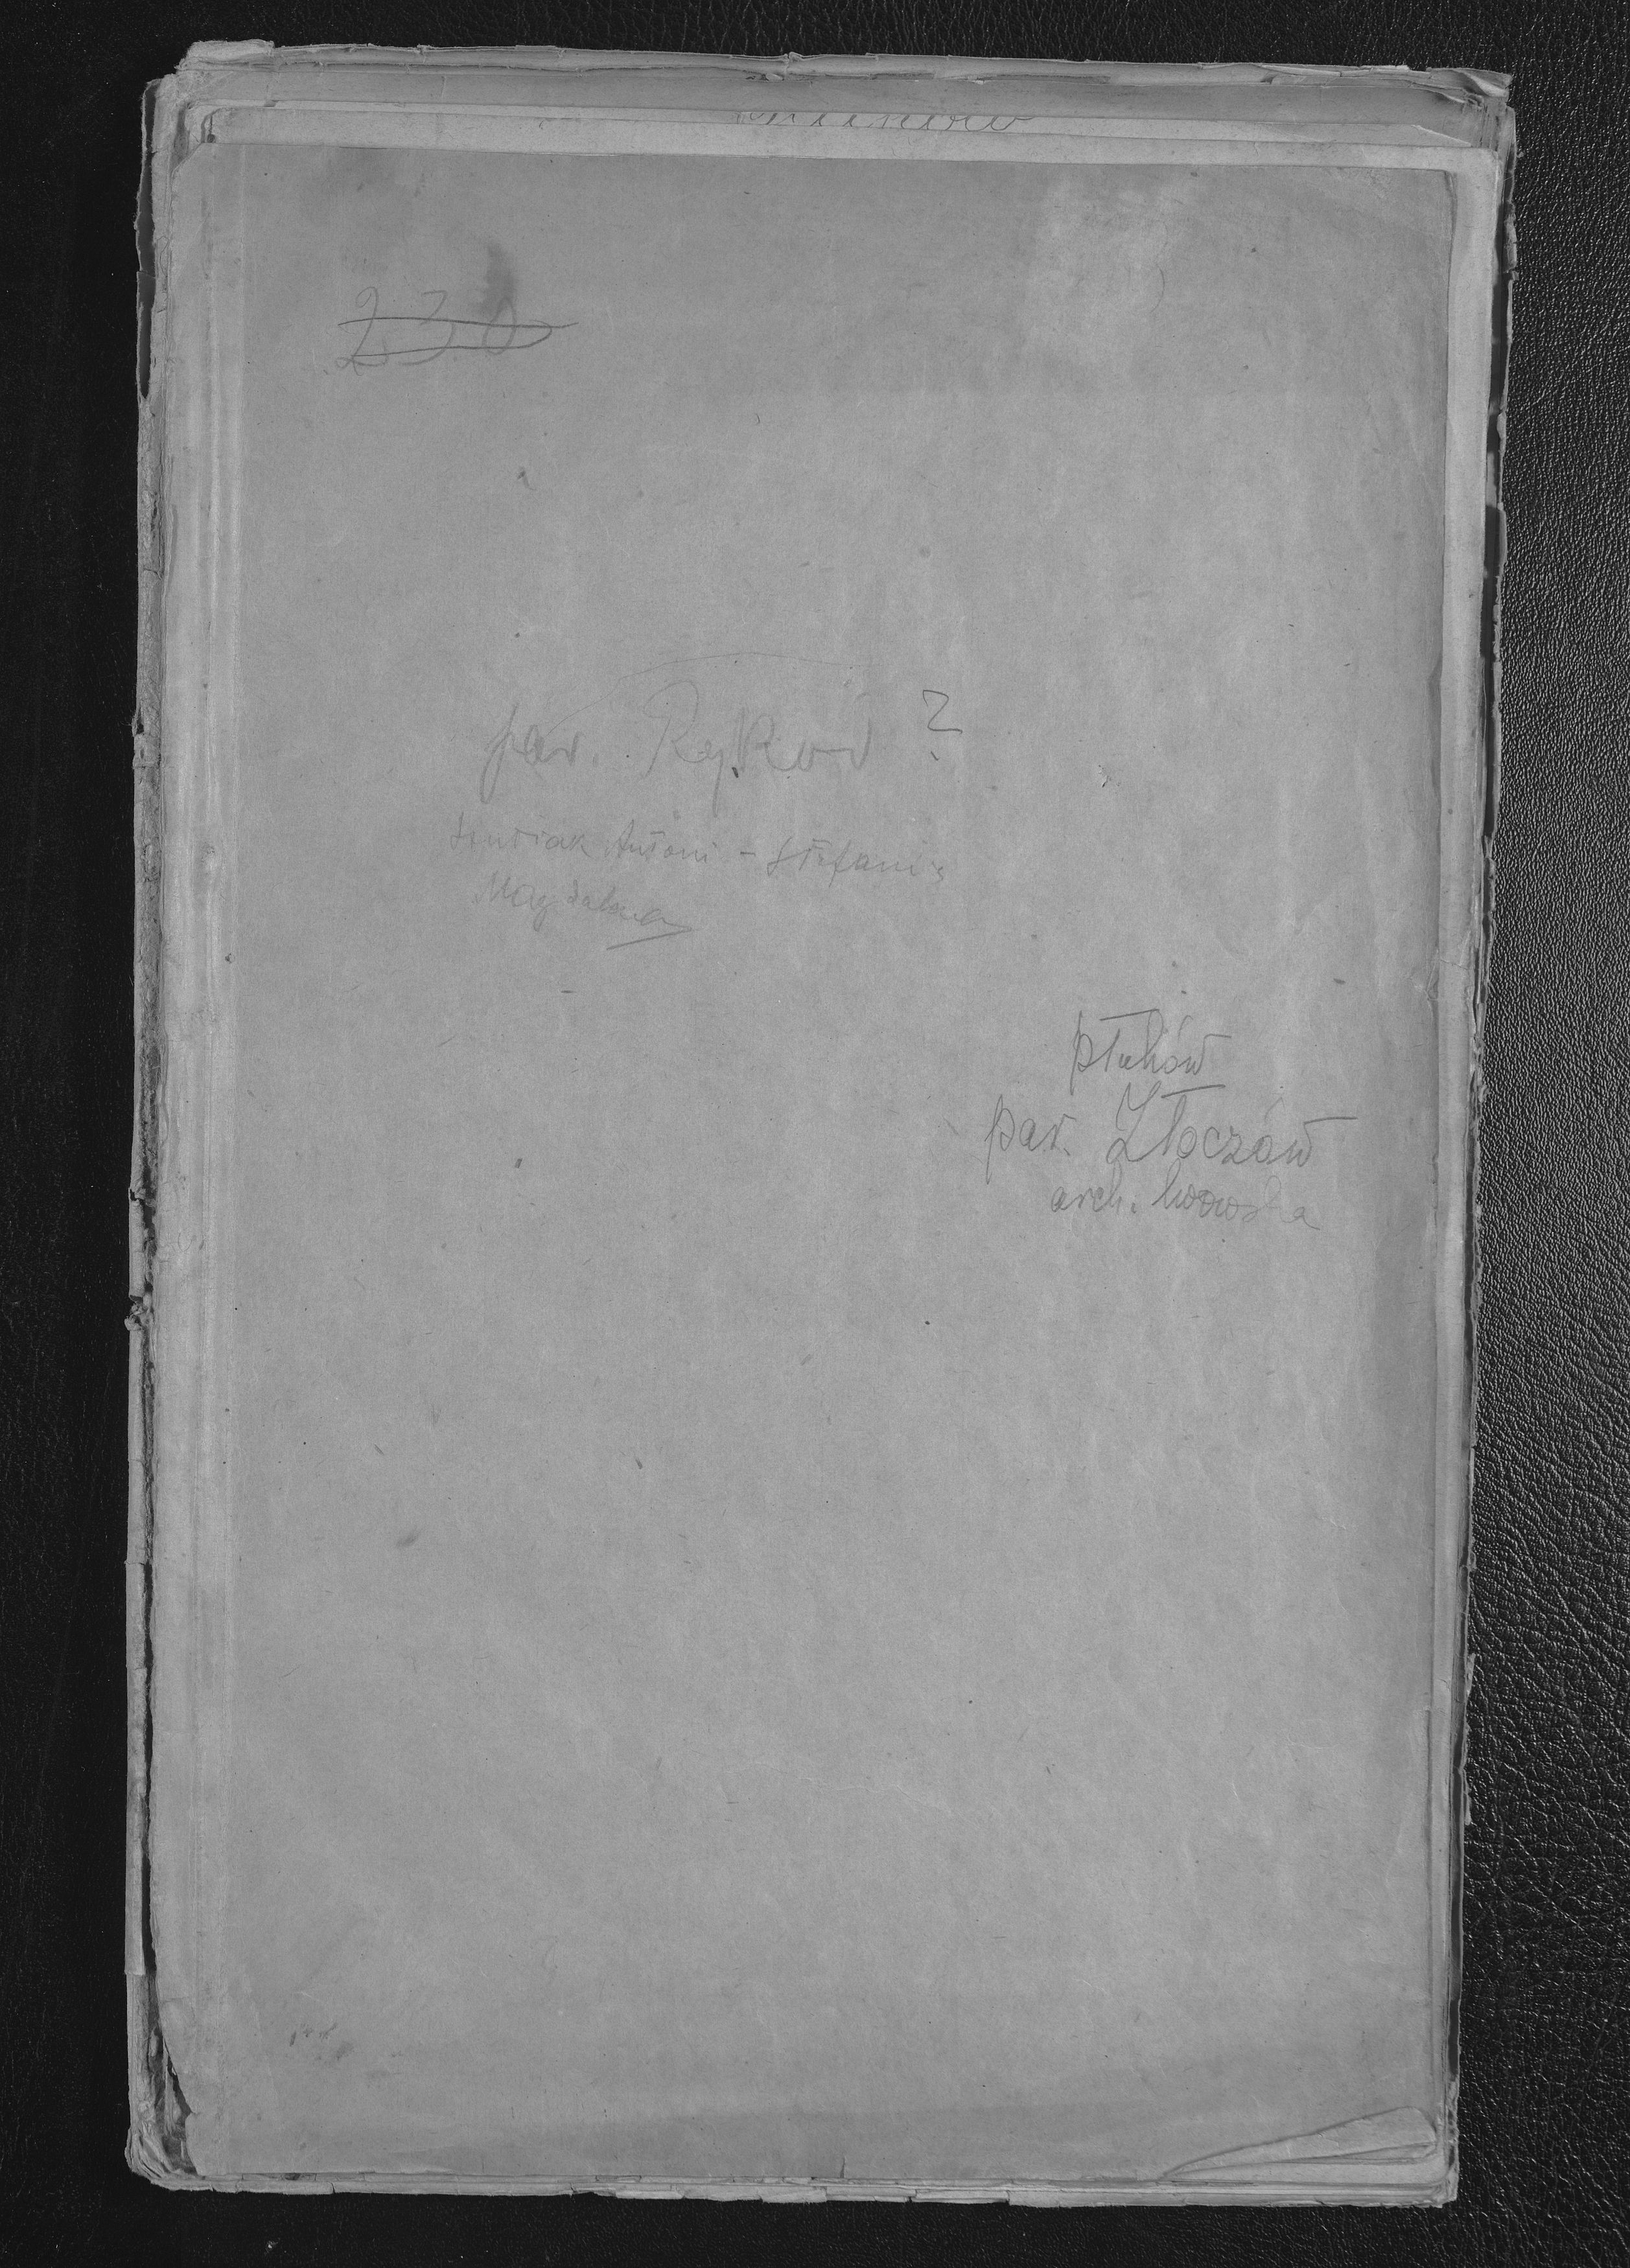 230
par. Rykow ?
Antoni - Stefania
Magdalena
Płuhów
par. Złoczów
arch. lwowska